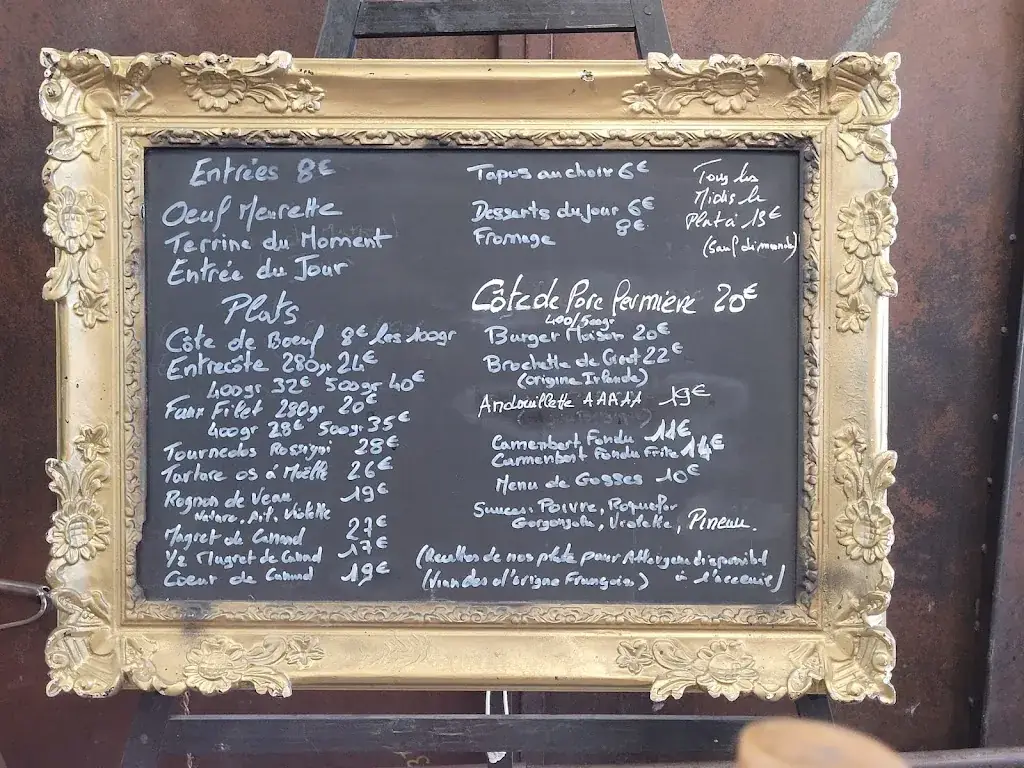 Entrées 8€
Oeuf Meurette
Terrine du Moment
Entrée du Jour
Plats
Côte de Boeuf 8€ les 100gr
Entrecôte 280gr 24€
400gr 32€ 500gr 40€
Faux Filet 280gr 20€
400gr 28€ 500gr 35€
Tournedos Rossigni 28€
Tartare os à Moëlle 26€
Rognon de Veau 19€
Nature, Ail, Violette
Magret de Canard 27€
1/2 Magret de Canard 17€
Coeur de Canard 19€
Tapas au choix 6€
Desserts du jour 6€
Fromage 8€
Tous les
Midis le
Plat à 13€
(Sauf dimanche)
Côte de Porc Fermière 20€
400/500gr
Burger Maison 20€
Brochette de 22€
(origine Irlande)
Andouillette AAAAA 19€
Camembert Fondu 11€
Camembert Fondu Frite 14€
Menu de Gosses 10€
Sauces: Poivre, Roquefor
Gorgonzola, Violette, Pineau.
(Recettes de nos plats pour Allergene disponibl
à l'acceuie)
(Viandes d'origne Française)